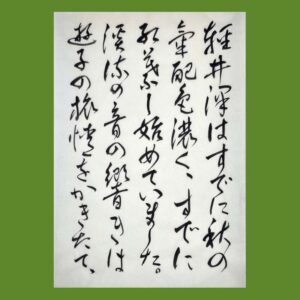 輕井澤はすでに秋の
氣配色濃く、すでに
紅葉し始めていました。
渓流の音の響きは
遊子の旅情を、かきたて、